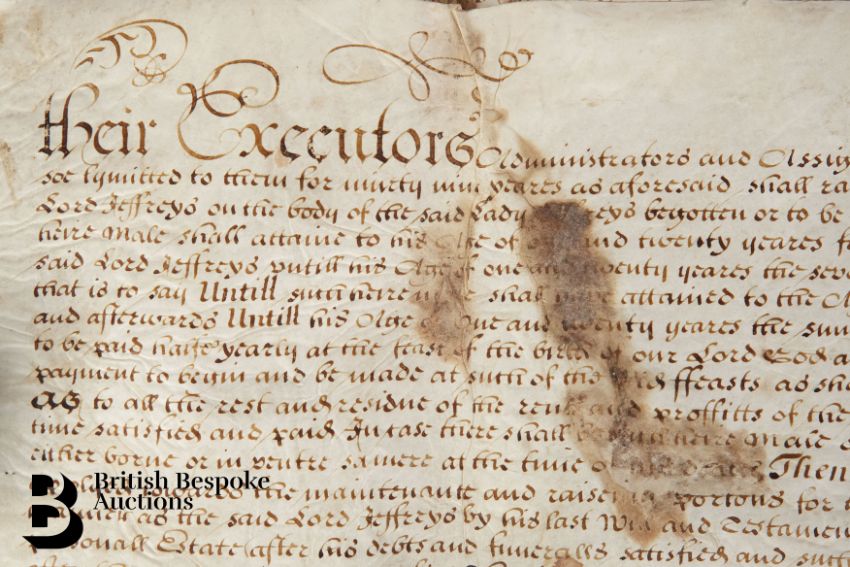 their Executors Administrators and Assig
soe lymitted to them for ninety nine yeares as aforesaid shall ra
Lord Jeffreys on the body of the said Lady begotten or to be
heire Male shall attaine to his Age of and twenty yeares f
said Lord Jeffreys untill his Age of one and twenty yeares the seve
that is to say Untill such heire shall have attained to the A
and afterwards Untill his Age of One and twenty yeares the sum
to be paid halfe yearly at the feast of the birth of our Lord God a
payment to begin and be made at such of the said ffeasts as sh
As to all the rest and residue of the rents and proffitts of the
time satisfied and paid In case there shall heire Male
either borne or in ventre sa mere at the time of Then
towards the maintenance and raiseing portons for
as the said Lord Jeffreys by his last Will and Testamen
Estate after his debts and funeralls satisfied and
British Bespoke
Auctions